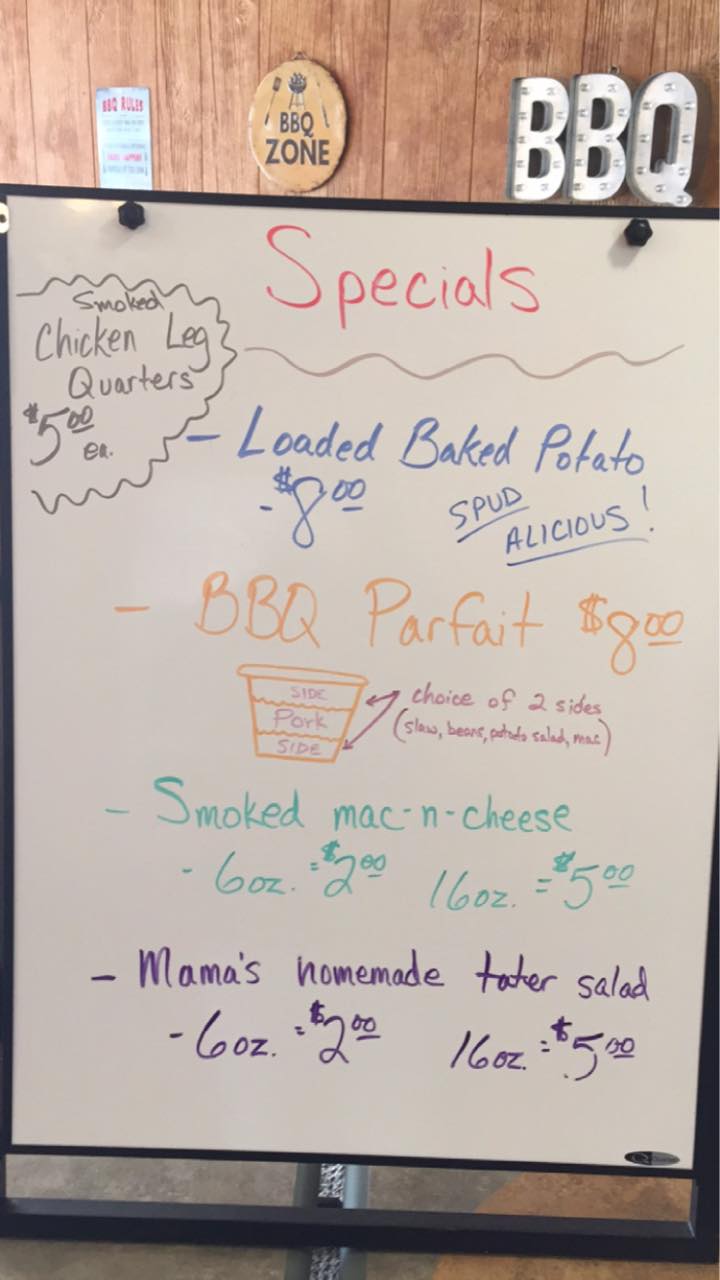 BBQ RULES
BBQ
ZONE
BBQ
Specials
Smoked
Chicken Leg
Quarters
$5.00
ea.
- Loaded Baked Potato
- $8.00
SPUD
ALICIOUS!
- BBQ Parfait $8.00
SIDE
Pork
SIDE
choice of 2 sides
(slaw, beans, potato salad, mac)
- Smoked mac-n-cheese
- 6oz. = $2.00 16oz. = $5.00
- Mama's homemade tater salad
- 6oz. = $2.00 16oz. = $5.00